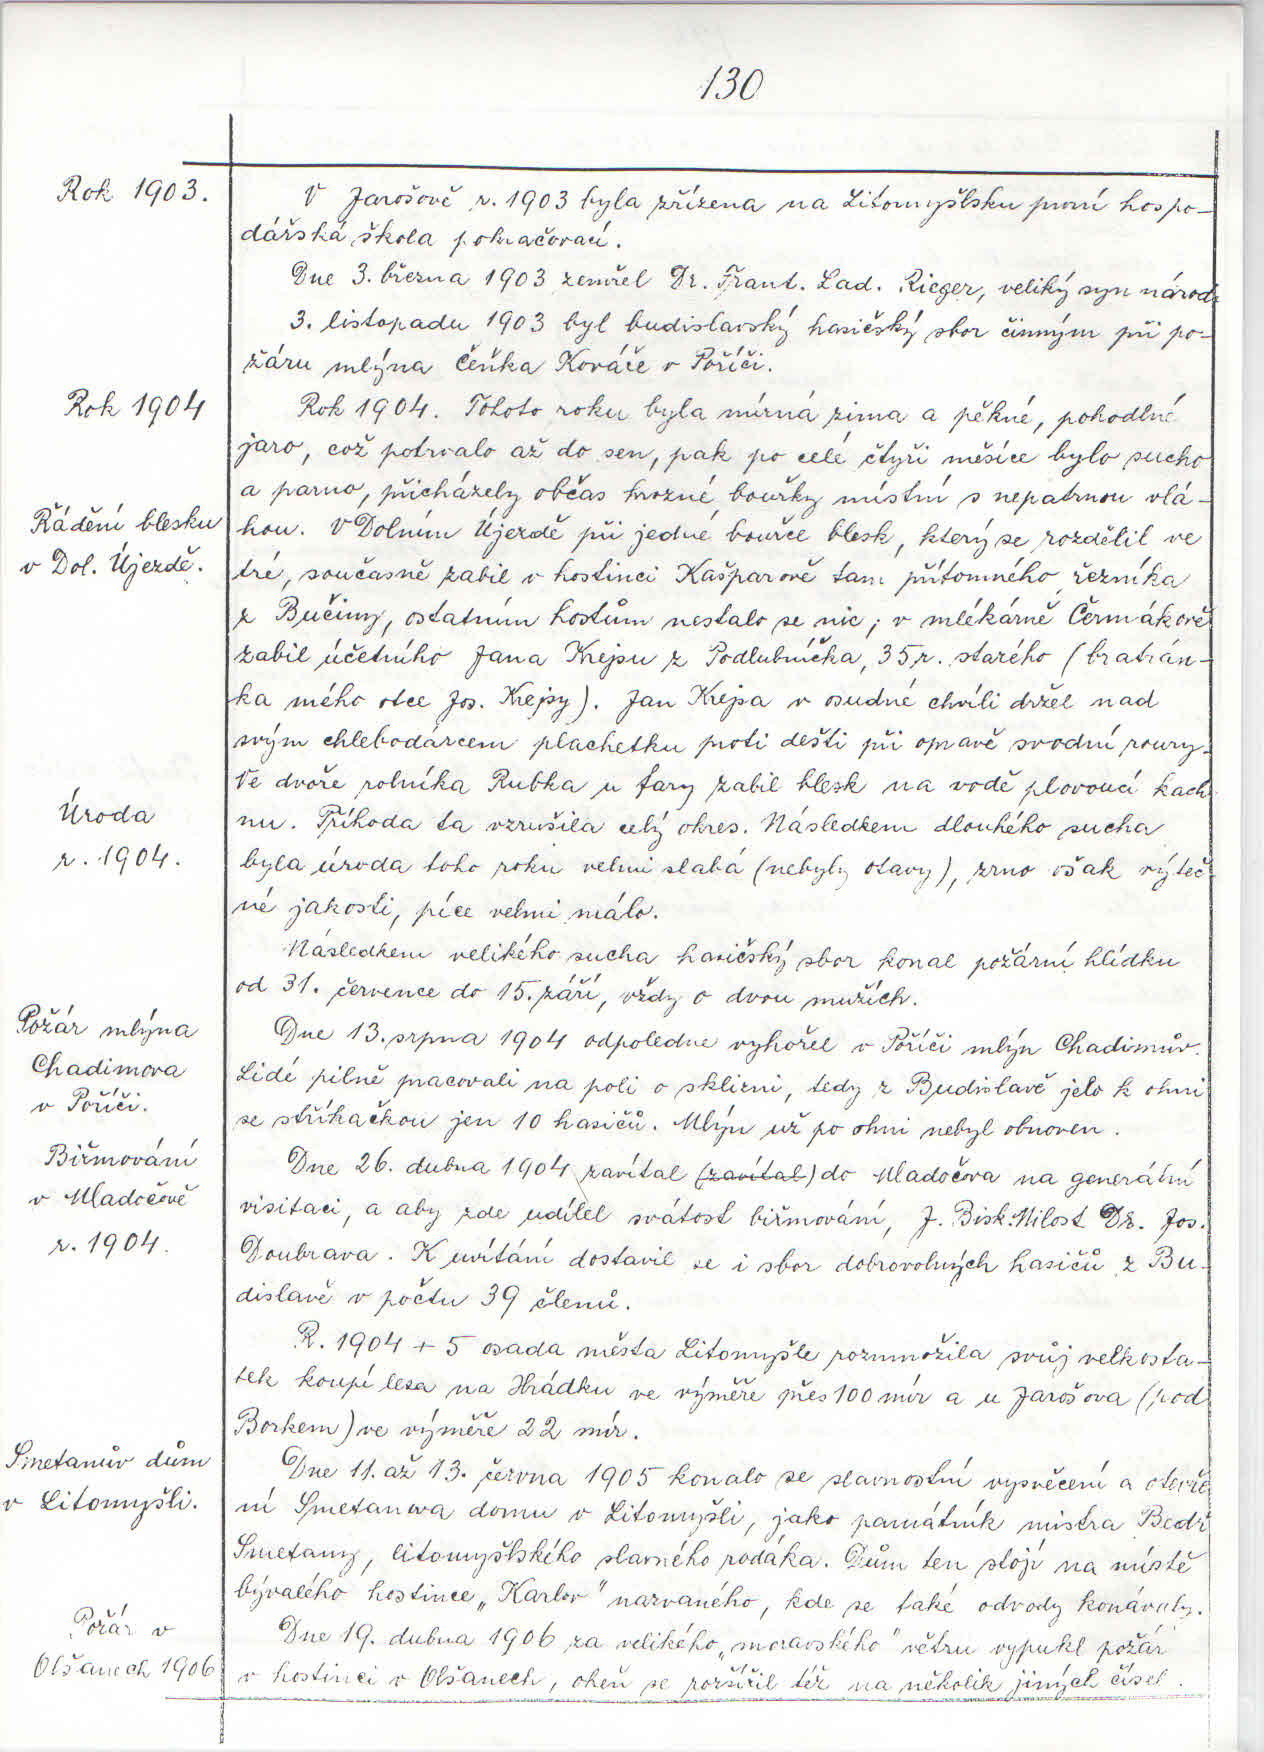 130
Rok 1903.
V Jarošově r. 1903 byla zřízena na Litomyšlsku první hospo-
dářská škola pokračovací.
Dne 3. března 1903 zemřel Dr. Frant. Lad. Rieger, veliký syn národ
3. listopadu 1903 byl budislavský hasičský sbor činným při po-
žáru mlýna Čeňka Kováře v Poříči.
Rok 1904
Rok 1904. Tohoto roku byla mírná zima a pěkné, pohodlné
jaro, což potrvalo až do sen, pak po celé čtyři měsíce bylo sucho
a parno, přicházely občas hrozné bouřky místní s nepatrnou vlá-
Řádění blesku
v Dol. Újezdě.
hou. V Dolním Újezdě při jedné bouřce blesk, který se rozdělil ve
tré, současně zabil v hostinci Kašparově tam přítomného řezníka
z Bučiny, ostatním hostům nestalo se nic; v mlékárně Čermákově
zabil účetního Jana Krejsu z Podlubníčka, 35 r. starého (bratrán-
ka mého otce Jos. Krejsy). Jan Krejsa v osudné chvíli držel nad
svým chlebodárcem plachetku proti dešti při opravě svodní roury.
Ve dvoře rolníka Rubka u fary zabil blesk na vodě plovoucí kach
Úroda
r. 1904.
nu. Příhoda ta vzrušila celý okres. Následkem dlouhého sucha
byla úroda toho roku velmi slabá (nebyly otavy), zrno však výteč
né jakosti, píce velmi málo.
Následkem velikého sucha hasičský sbor konal požární hlídku
od 31. července do 15. září, vždy o dvou mužích.
Požár mlýna
Chadimova
v Poříči.
Dne 13. srpna 1904 odpoledne vyhořel v Poříči mlýn Chadimův.
Lidé pilně pracovali na poli o sklizni, tedy z Budislavě jelo k ohni
se stříkačkou jen 10 hasičů. Mlýn už po ohni nebyl obnoven.
Biřmování
v Mladočově
r. 1904.
Dne 26. dubna 1904 zavítal (zavítal) do Mladočova na generální
visitaci, a aby zde udílel svátost biřmování, J. Bisk. Milost Dr. Jos.
Doubrava. K uvítání dostavil se i sbor dobrovolných hasičů z Bu-
dislavě v počtu 39 členů.
R. 1904 + 5 osada města Litomyšle rozmnožila svůj velkosta-
tek koupí lesa na Hrádku ve výměře přes 100 mír a u Jarošova (pod
Borkem) ve výměře 22 mír.
Smetanův dům
v Litomyšli.
Dne 11. až 13. června 1905 konalo se slavnostní vysvěcení a otevře
ní Smetanova domu v Litomyšli, jako památník mistra Bedř
Smetany, litomyšlského slavného rodáka. Dům ten stojí na místě
bývalého hostince „Karlov" nazvaného, kde se také odvody konávaly.
Požár v
Olšanech 1906
Dne 19. dubna 1906 za velikého „moravského" větru vypukl požár
v hostinci v Olšanech, oheň se rozšířil též na několik jiných čísel.